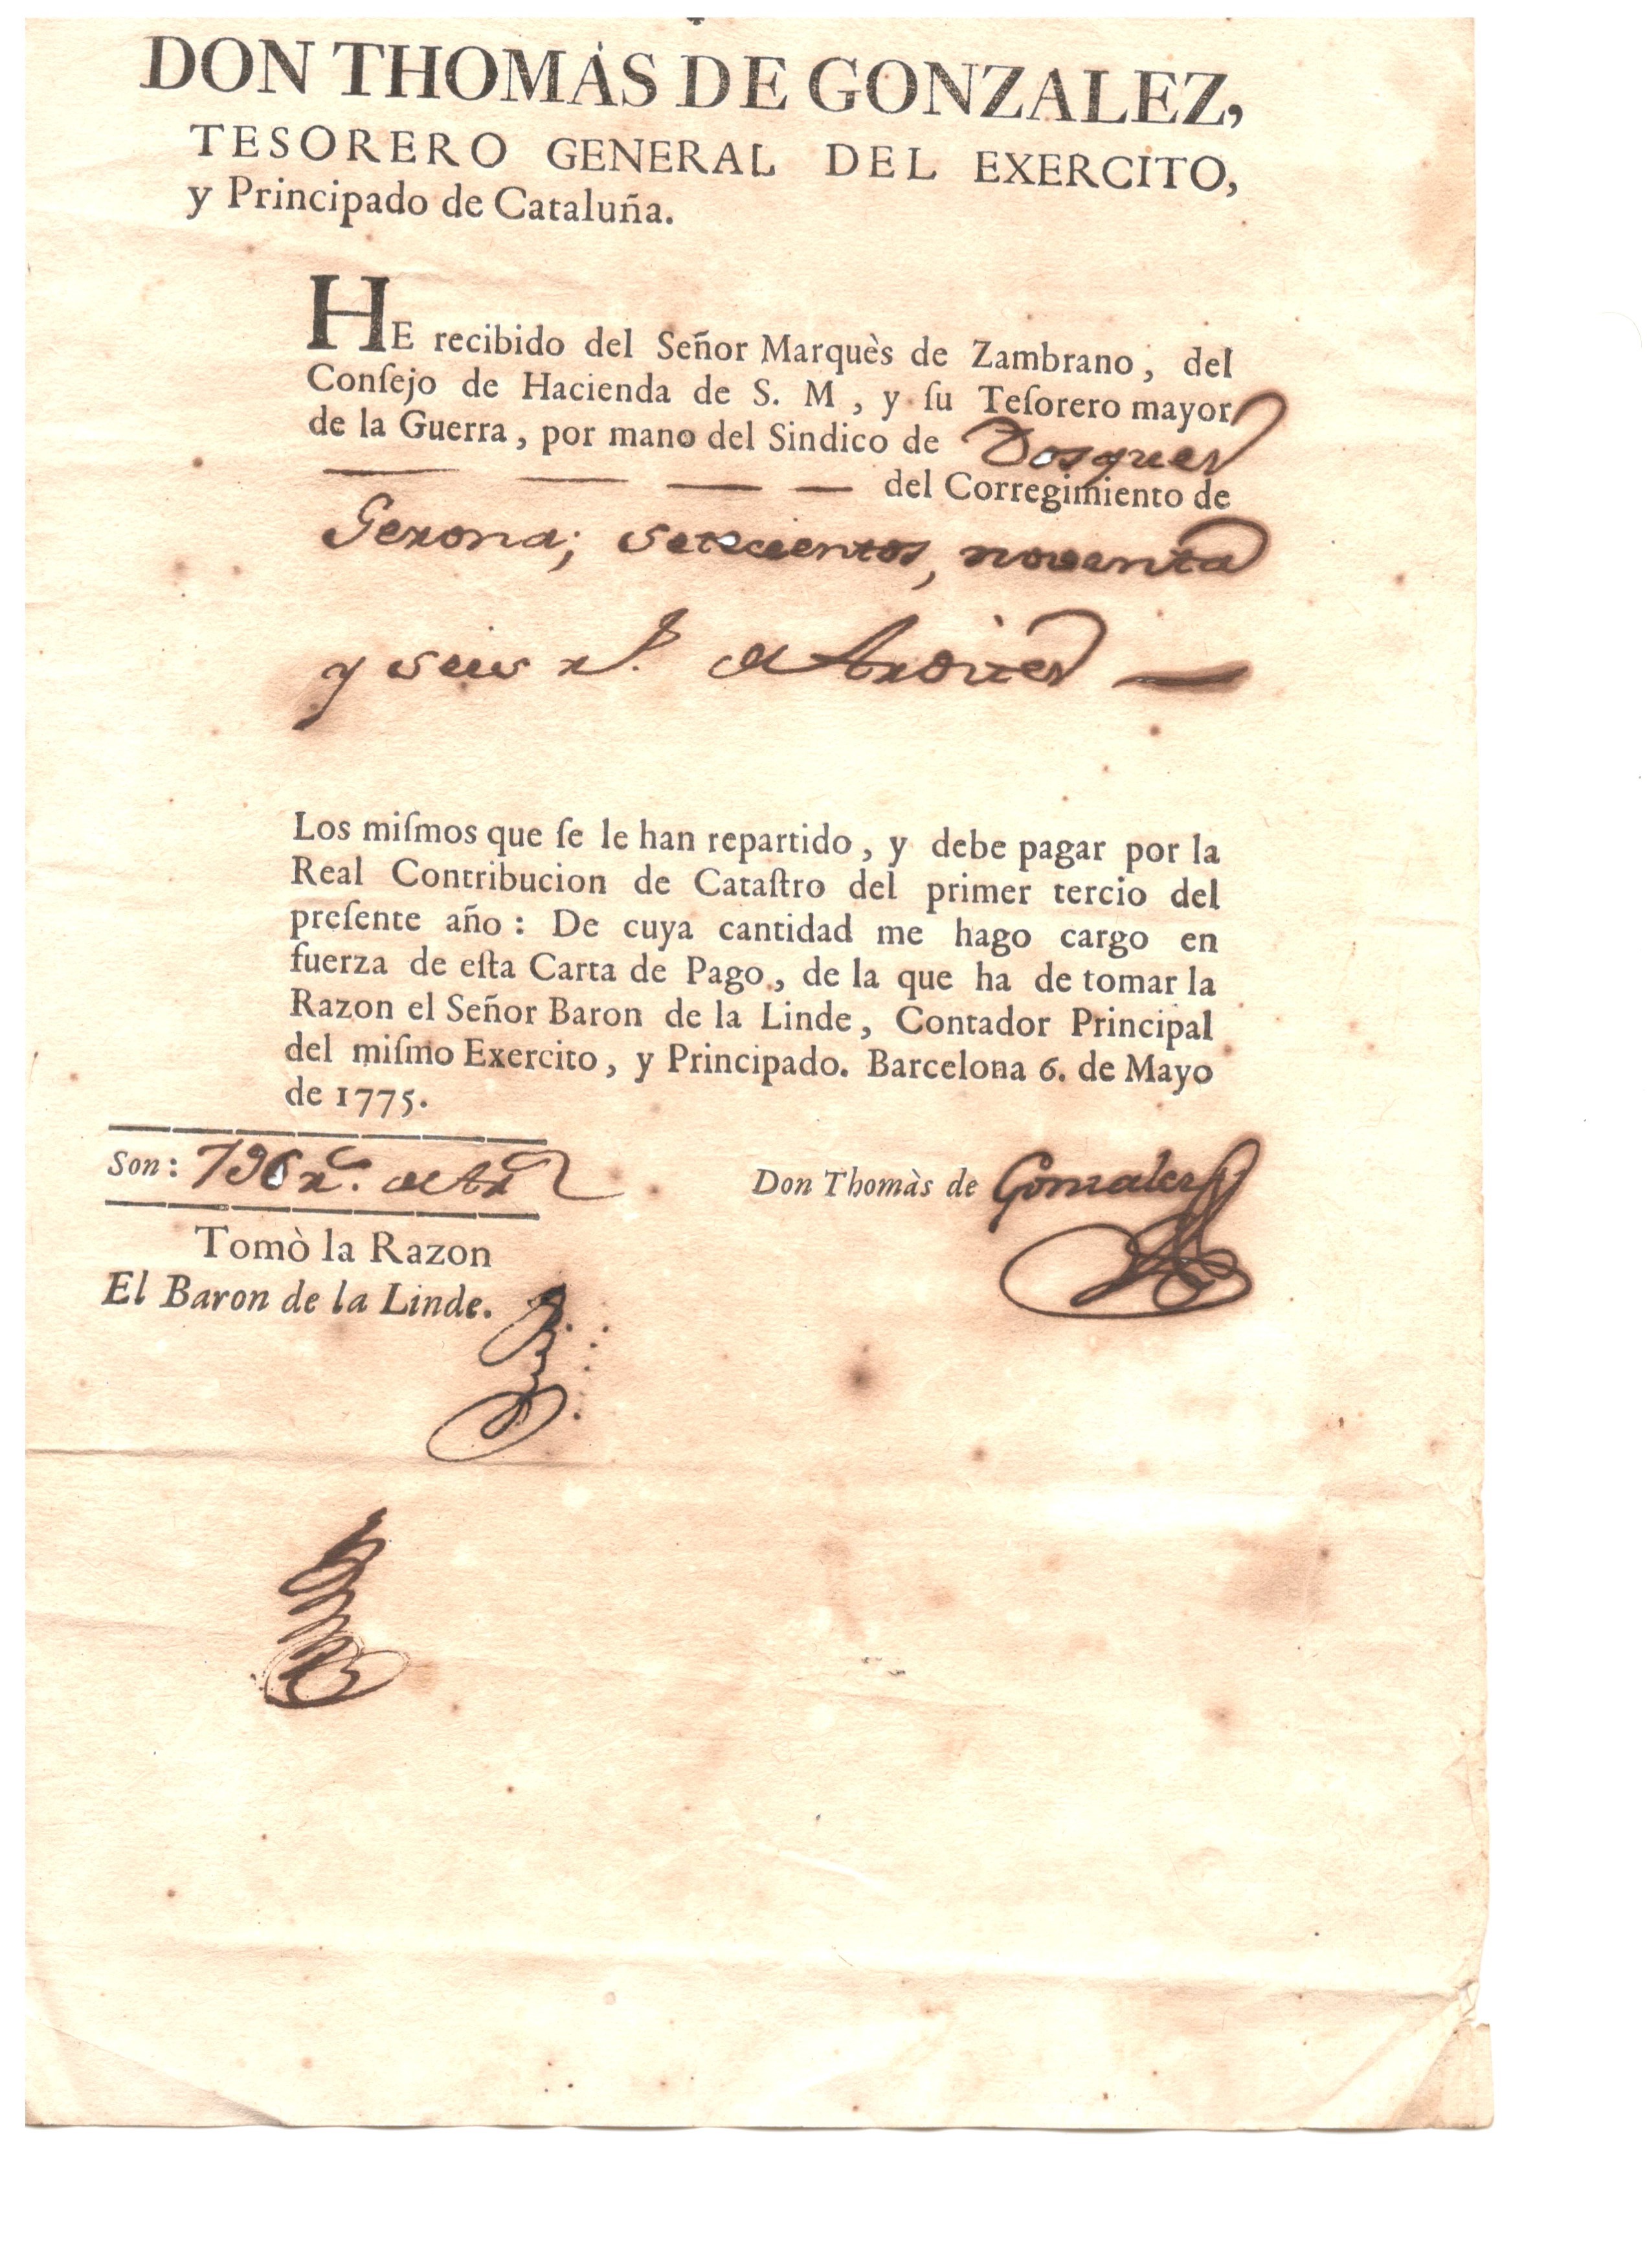 DON THOMÁS DE GONZALEZ,
TESORERO GENERAL DEL EXERCITO,
y Principado de Cataluña.
HE recibido del Señor Marquès de Zambrano, del
Conſejo de Hacienda de S. M, y ſu Teſorero mayor
de la Guerra, por mano del Sindico de Dosquers
del Corregimiento de
Gerona; setecientos, noventa
y seis rs. de Ardites
Los miſmos que ſe le han repartido, y debe pagar por la
Real Contribucion de Cataſtro del primer tercio del
preſente año: De cuya cantidad me hago cargo en
fuerza de eſta Carta de Pago, de la que ha de tomar la
Razon el Señor Baron de la Linde, Contador Principal
del miſmo Exercito, y Principado. Barcelona 6. de Mayo
de 1775.
Son: 796 rs. de Ars
Don Thomàs de Gonzalez
Tomò la Razon
El Baron de la Linde.